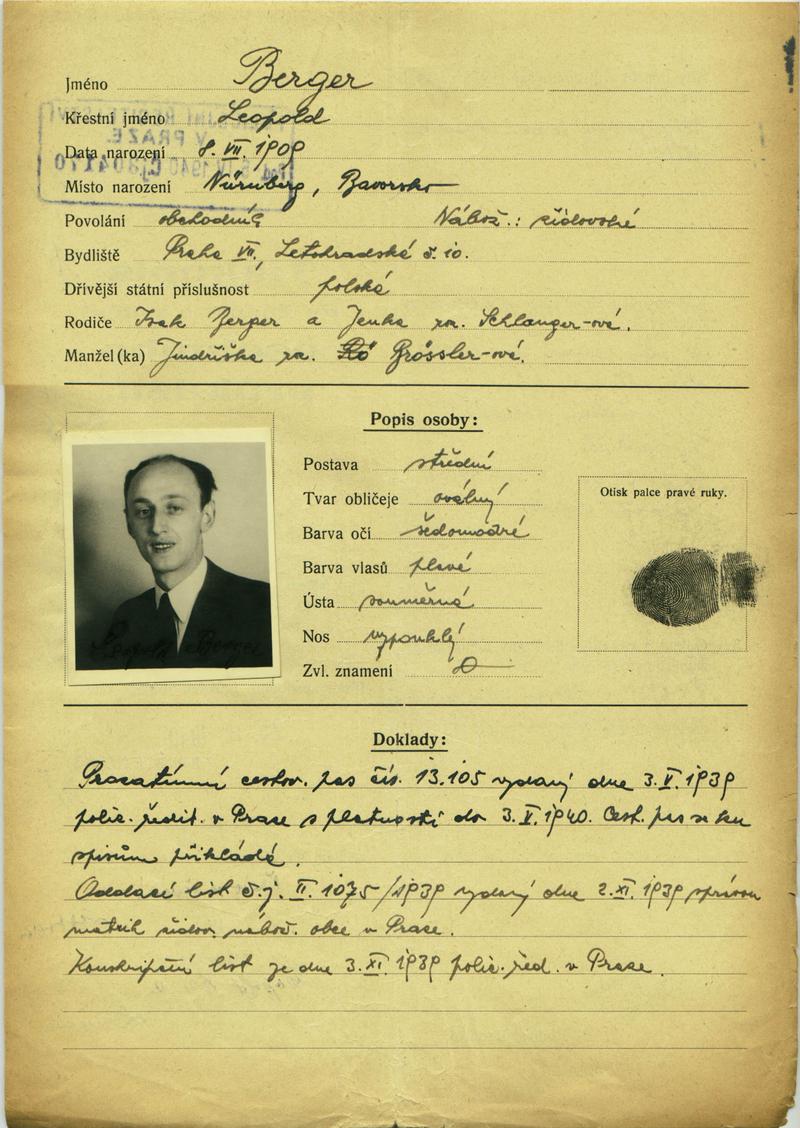 Jméno Berger
Křestní jméno Leopold
Data narození 8. VII. 1909
Místo narození Nürnberg, Bavorsko
Povolání obchodník Nábož.: židovské
Bydliště Praha VII., Letohradská č. 10.
Dřívější státní příslušnost polská
Rodiče Isak Berger a Jenka roz. Schlanger-ová.
Manžel(ka) Jindřiška roz. Grössler-ová.
Popis osoby:
Postava střední
Tvar obličeje oválný
Barva očí šedomodré
Barva vlasů plavé
Ústa souměrná
Nos vypouklý
Zvl. znamení 0
Otisk palce pravé ruky.
Leopold Berger
Doklady:
Prozatímní cestov. pas čís. 13.105 vydaný dne 3. V. 1939
polic. ředit. v Praze s platností do 3. V. 1940. Cest. pas se ku
spisům přikládá.
Oddací list č.j. II. 1075/1939 vydaný dne 2. XI. 1939 správou
matrik židov. nábož. obce v Praze.
Konskripční list ze dne 3. XI. 1939 polic. řed. v Praze.